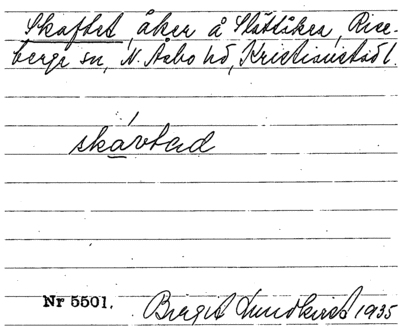 Skaftet, åker å Slättåkra, Rise-
berga sn, N. Åsbo hd, Kristianstad l.
skávtad
Nr 5501.
Birgit Lundkvist 1935